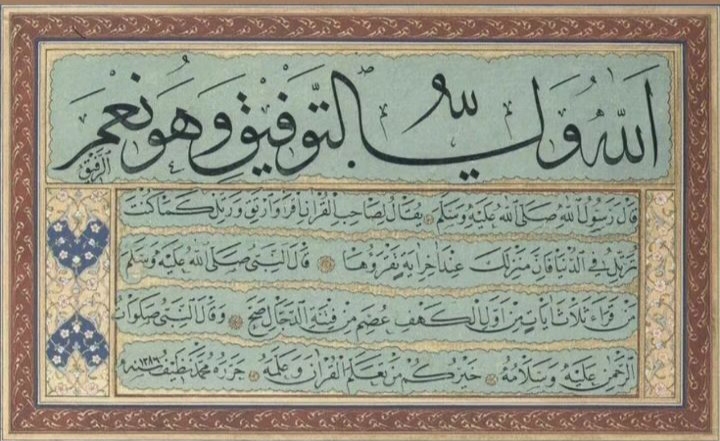 اَللّٰهُ وَلِيُّ التَّوْفِيْقِ وَهُوَ نِعْمَ
الرَّفِيْقُ
قَالَ رَسُولُ اللّٰهِ صَلَّى اللّٰهُ عَلَيْهِ وَسَلَّمَ يُقَالُ لِصَاحِبِ الْقُرْاٰنِ اِقْرَأْ وَارْتَقِ وَرَتِّلْ كَمَا كُنْتَ
تُرَتِّلُ فِي الدُّنْيَا فَاِنَّ مَنْزِلَكَ عِنْدَ اٰخِرِ اٰيَةٍ تَقْرَؤُهَا قَالَ النَّبِيُّ صَلَّى اللّٰهُ عَلَيْهِ وَسَلَّمَ
مَنْ قَرَأَ ثَلَاثَ اٰيَاتٍ مِنْ اَوَّلِ الْكَهْفِ عُصِمَ مِنْ فِتْنَةِ الدَّجَّالِ صح وَقَالَ النَّبِيُّ صَلَوَاتُ
الرَّحْمٰنِ عَلَيْهِ وَسَلَامُهُ خَيْرُكُمْ مَنْ تَعَلَّمَ الْقُرْاٰنَ وَعَلَّمَهُ حَرَّرَهُ مُحَمَّد نَظِيف سنه ١٢٨٦